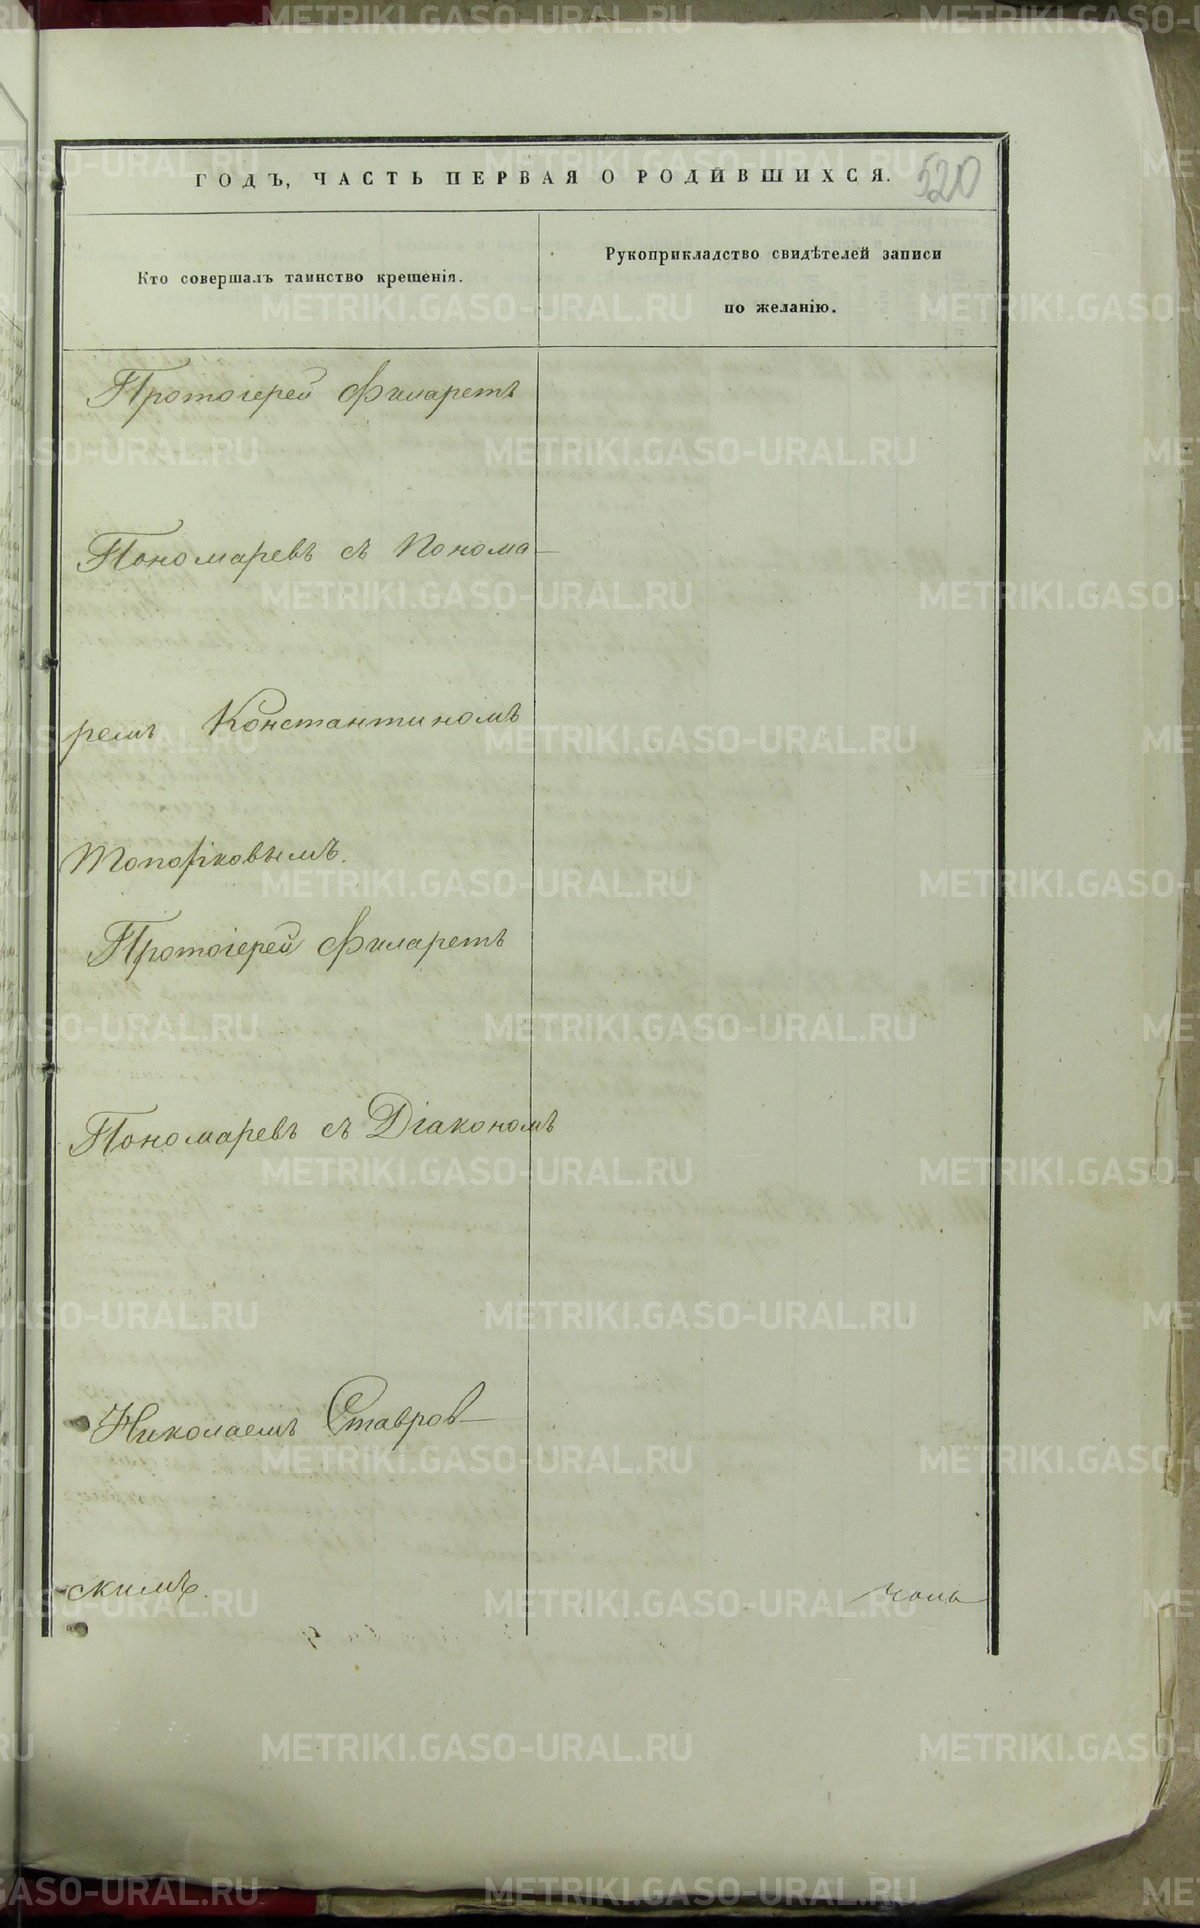 ГОДЪ, ЧАСТЬ ПЕРВАЯ О РОДИВШИХСЯ. 520
Кто совершалъ таинство крещенія.
Рукоприкладство свидѣтелей записи
по желанію.
Протоіерей Филаретъ
Пономаревъ съ Понома-
ремъ Константиномъ
Топорковымъ.
Протоіерей Филаретъ
Пономаревъ съ Діакономъ
Николаемъ Ставров-
скимъ.
METRIKI.GASO-URAL.RU